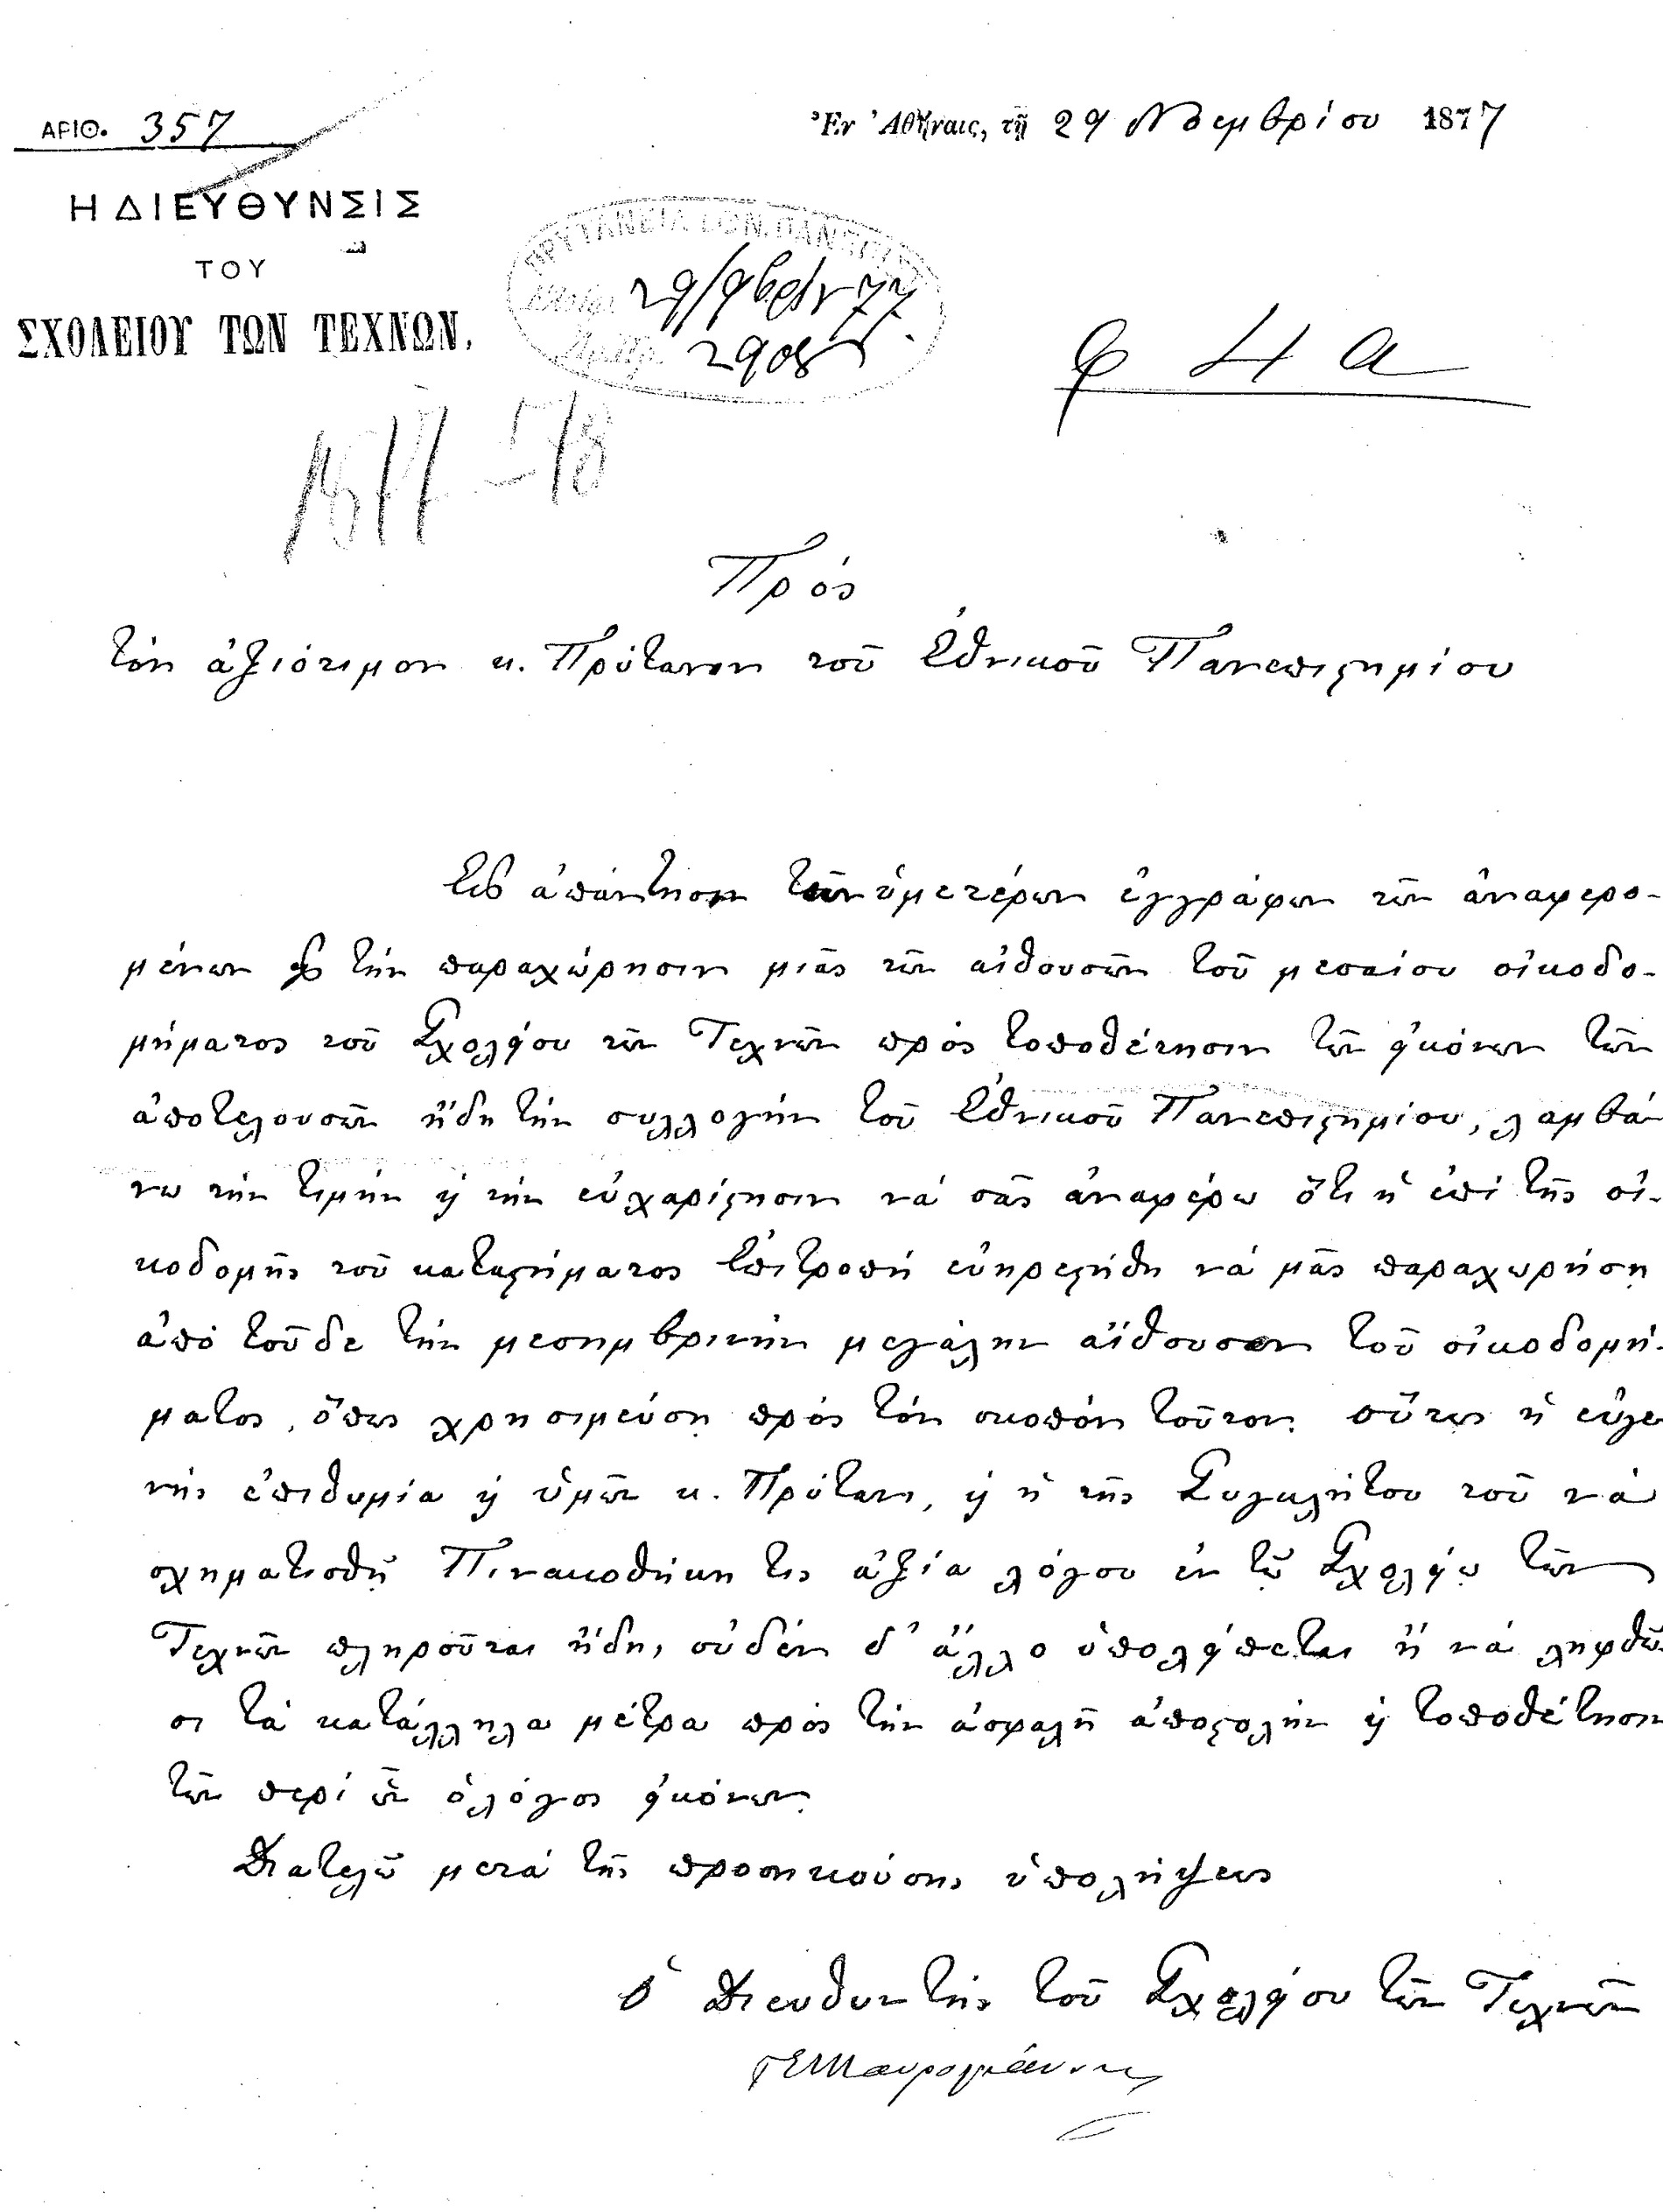 ΑΡΙΘ. 357
Ἐν Ἀθήναις, τῇ 29 Νοεμβρίου 1877
Η ΔΙΕΥΘΥΝΣΙΣ
ΤΟΥ
ΣΧΟΛΕΙΟΥ ΤΩΝ ΤΕΧΝΩΝ.
ΠΡΥΤΑΝΕΙΑ ΕΘΝ. ΠΑΝΕΠΙΣ
29/9βρίου 77.
2908
φ 4 α
1877-78
Πρός
τόν ἀξιότιμον κ. Πρύτανιν τοῦ Ἐθνικοῦ Πανεπιϛημίου
Εἰς ἀπάντησιν τῶν ὑμετέρων ἐγγράφων τῶν ἀναφερο-
μένων εἰς τήν παραχώρησιν μιᾶς τῶν αἰθουσῶν τοῦ μεσαίου οἰκοδο-
μήματος τοῦ Σχολείου τῶν Τεχνῶν πρός τοποθέτησιν τῶν εἰκόνων τῶν
ἀποτελουσῶν ἤδη τήν συλλογήν τοῦ Ἐθνικοῦ Πανεπιϛημίου, λαμβά
νω τήν τιμήν ϗ τήν εὐχαρίϛησιν νά σᾶς ἀναφέρω ὅτι ἡ ἐπί τῆς οἰ-
κοδομῆς τοῦ καταϛήματος Ἐπιτροπή εὐηρεϛήθη νά μᾶς παραχωρήσῃ
ἀπό τοῦδε τήν μεσημβρινήν μεγάλην αἴθουσαν τοῦ οἰκοδομή-
ματος, ὅπως χρησιμεύσῃ πρός τόν σκοπόν τοῦτον. οὕτως ἡ εὐγε
νής ἐπιθυμία ϗ ὑμῶν κ. Πρύτανι, ϗ ἡ τῆς Συγκλήτου τοῦ νά
σχηματισθῇ Πινακοθήκη τις ἀξία λόγου ἐν τῷ Σχολείῳ τῶν
Τεχνῶν πληροῦται ἤδη, οὐδέν δ' ἄλλο ὑπολείπεται ἤ νά ληφθῶ
σι τά κατάλληλα μέτρα πρός τήν ἀσφαλῆ ἀποϛολήν ϗ τοποθέτησιν
τῶν περί ὧν ὁ λόγος εἰκόνων.
Διατελῶ μετά τῆς προσηκούσης ὑπολήψεως
Ὁ Διευθυντής τοῦ Σχολείου τῶν Τεχνῶν
ΓΕΜαυρογιάννης